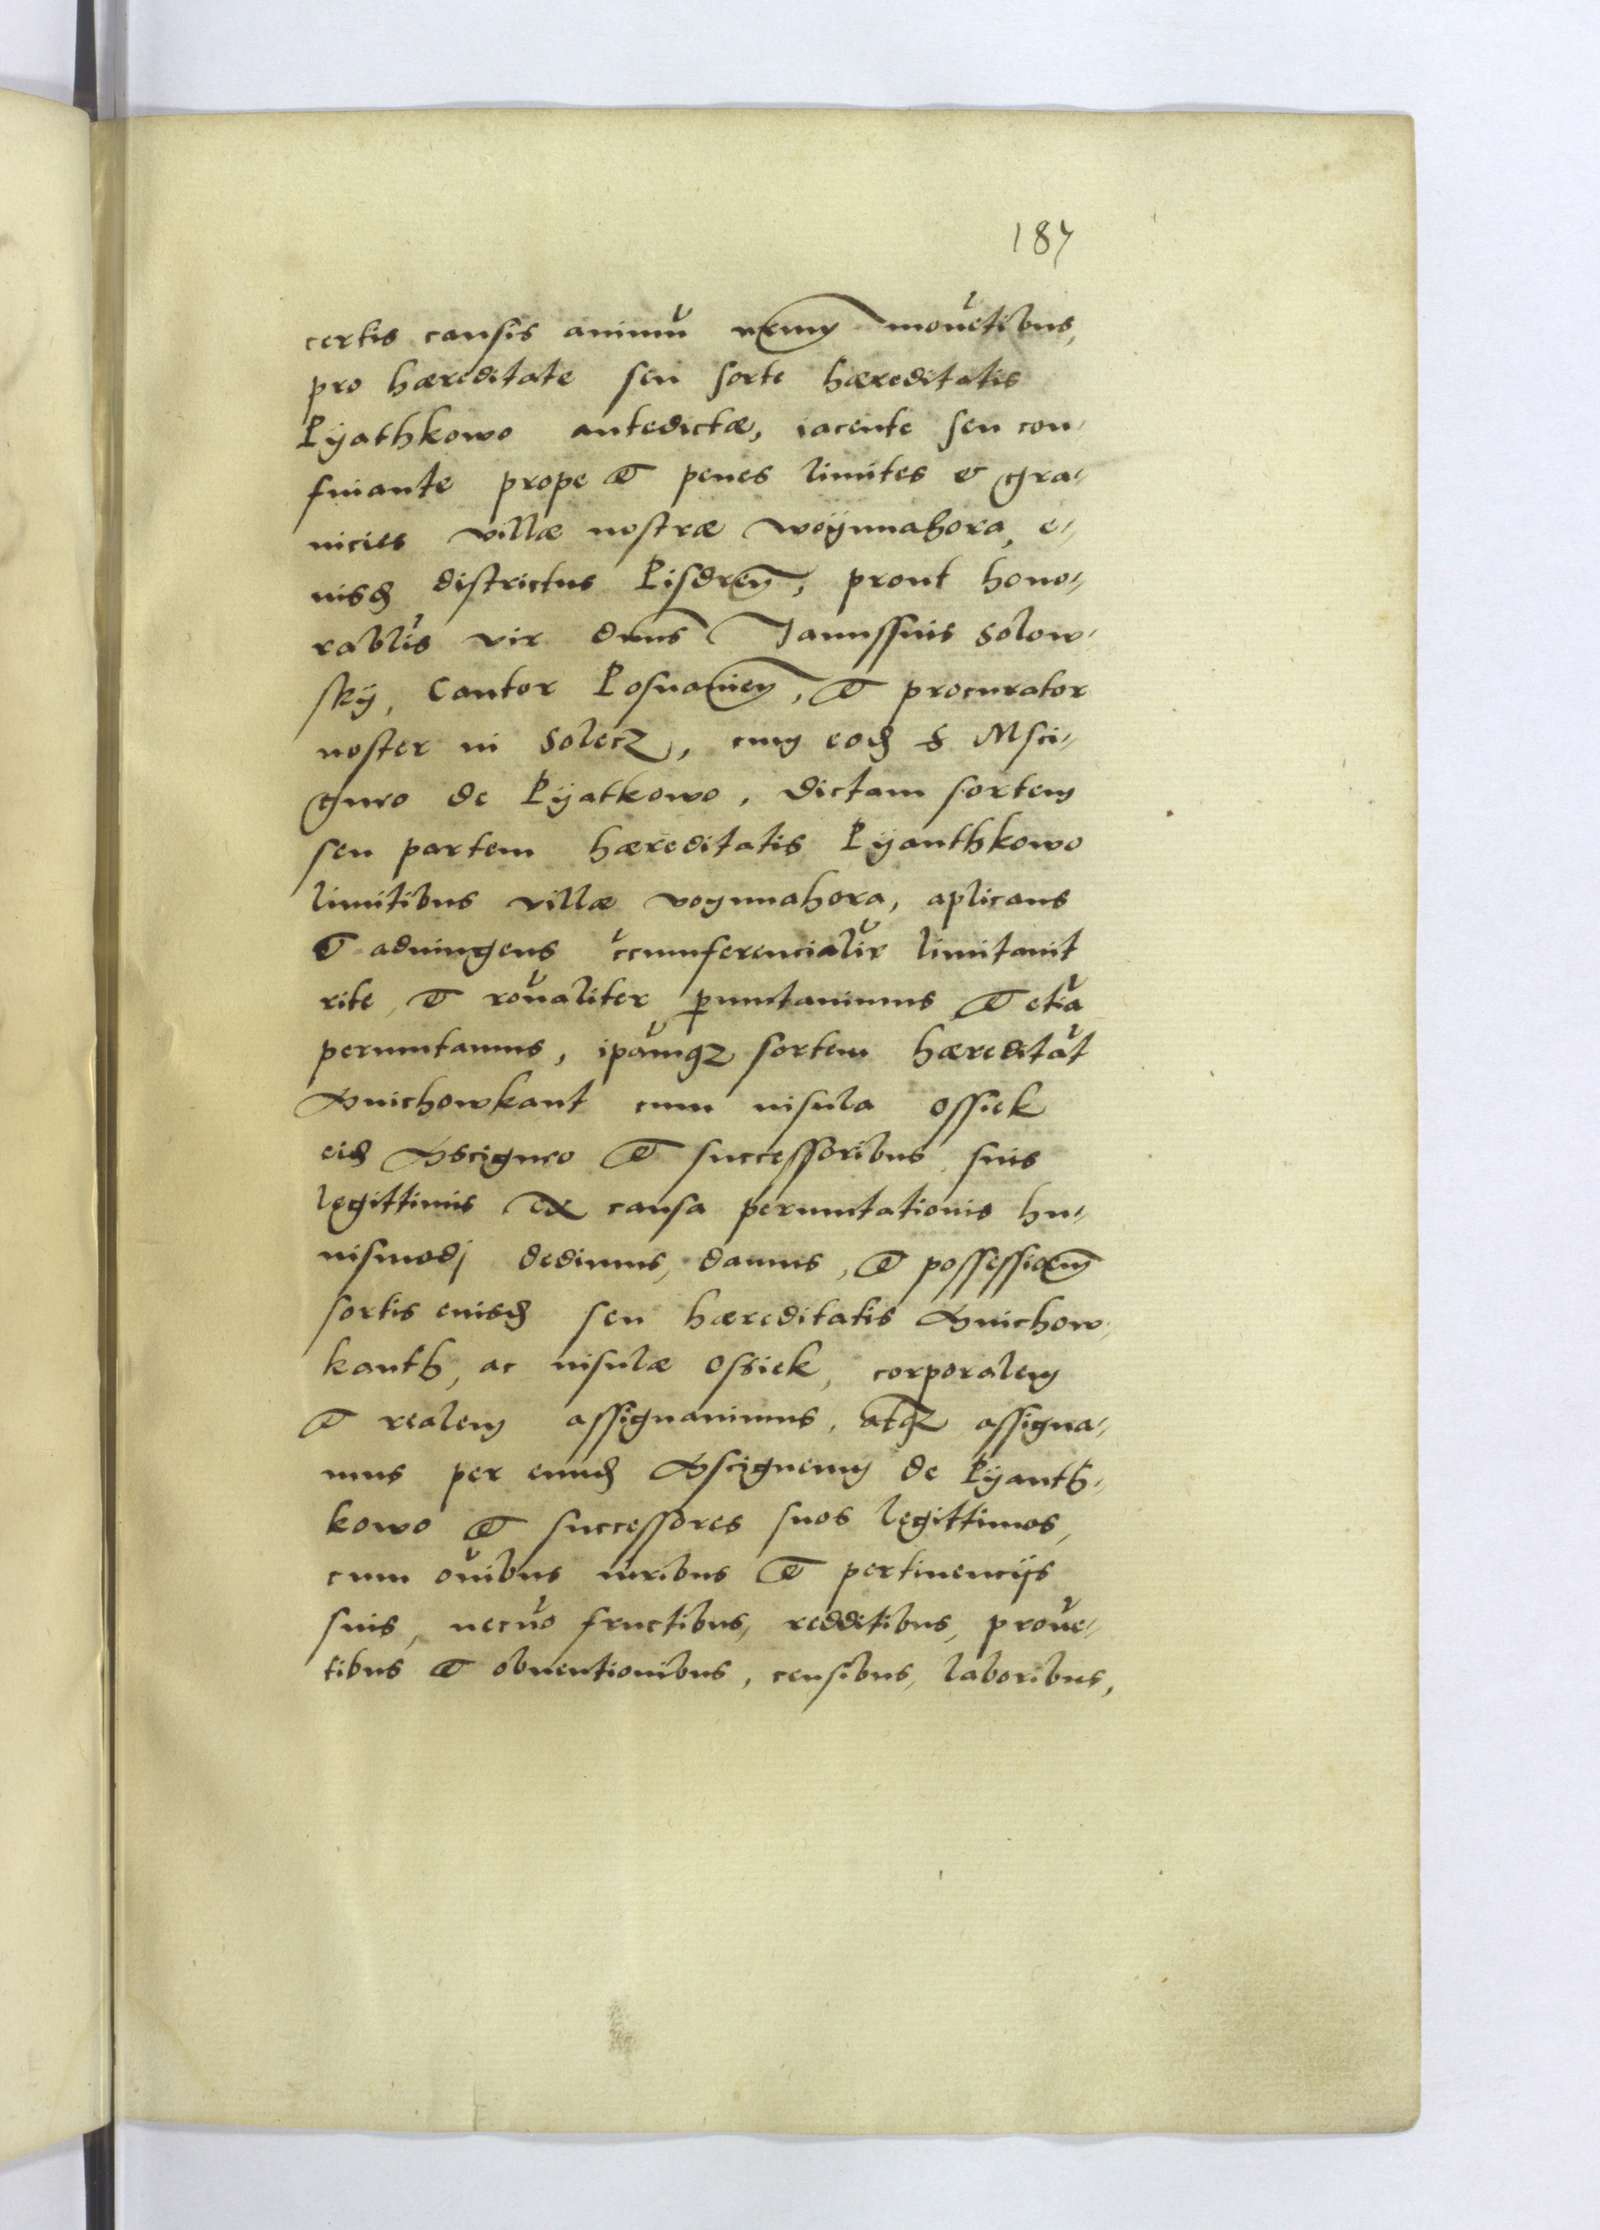 187
certis causis animũ nr̃um mouẽtibus,
pro hæreditate seu sorte hæreditatis
Pÿathkowo antedictæ, iacente seu con-
finante prope et penes limites & gra-
nicies villæ nostræ woÿnnahora, e-
iusd districtus Pisdreñ, prout hono-
rablĩs vir dnũs Janussius Solow-
skÿ, Cantor Posnanieñ, et procurator
noster in Solecz, cum eod S Msci-
gnro de Pÿatkowo, dictam sortem
seu partem hæreditatis Pÿanthkowo
limitibus villæ voynnahora, aplicans
et adiungens ccumferencialĩr limitauit
rite, et roñaliter permutauimus et etiã
permutamus, ipãmqz sortem hæreditãt
Gnichowkant cum insula Ossiek
eid Mscignro et successoribus suis
legittimis ex causa permutationis hu-
iusmodj dedimus, damus, et possessioem̃
sortis eiusd seu hæreditatis Gnichow-
kanth, ac insulæ Ossiek, corporalem
et realem assignauimus, atqz assigna-
mus per eund Mscignenum de Pÿanth-
kowo et successores suos legittimos,
cum oĩbus iuribus et pertinencijs
suis, necnõ fructibus, redditibus, prouẽ-
tibus et obuentionibus, censibus, laboribus,